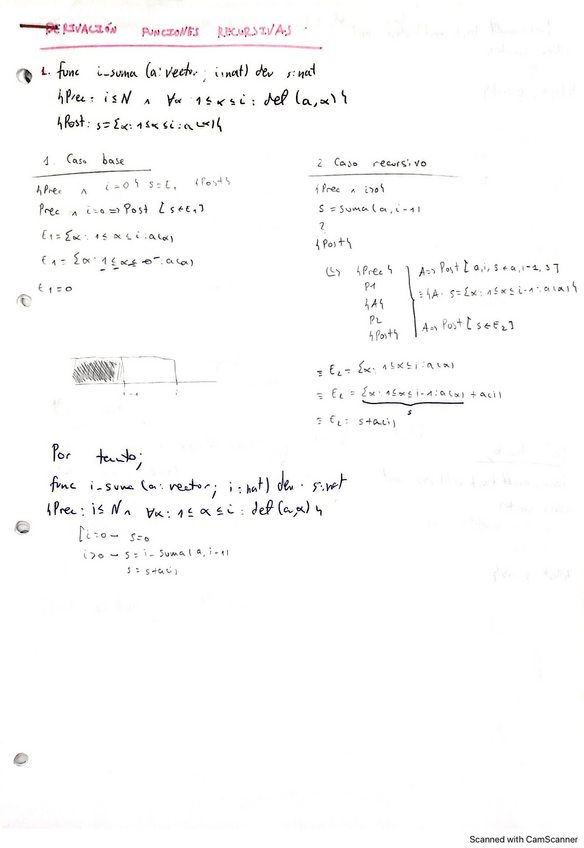 DERIVACIÓN FUNCIONES RECURSIVAS.
1. func i_suma (a: vector; i:nat) dev s:nat
{Prec: i≤N ∧ ∀α 1≤α≤i: def(a,α)}
{Post: s=Σα:1≤α≤i:a(α)}
1. Caso base
{Prec ∧ i=0} s=E₁ {Post}
Prec ∧ i=0 => Post [s←E₁]
E₁=Σα: 1≤α≤i:a(α)
E₁=Σα: 1≤α≤0:a(α)
E₁=0
2 Caso recursivo
{Prec ∧ i>0}
S=suma(a,i-1)
?
{Post}
{Prec}
P1
{A}
P2
{Post}
A=> Post [a,i,s←a,i-1,s]
={A: s=Σα:1≤α≤i-1:a(α)}
A=> Post [s←E₂]
≡ E₂=Σα:1≤α≤i:a(α)
≡ E₂=Σα:1≤α≤i-1:a(α)+a(i)
s
≡ E₂: s+a(i)
i
Por tanto;
func i_suma (a: vector; i:nat) dev s:nat
{Prec: i≤N ∧ ∀α: 1≤α≤i: def(a,α)}
[i=0 → s=0
i>0 → s=i_suma(a,i-1)
s=s+a(i)
Scanned with CamScanner